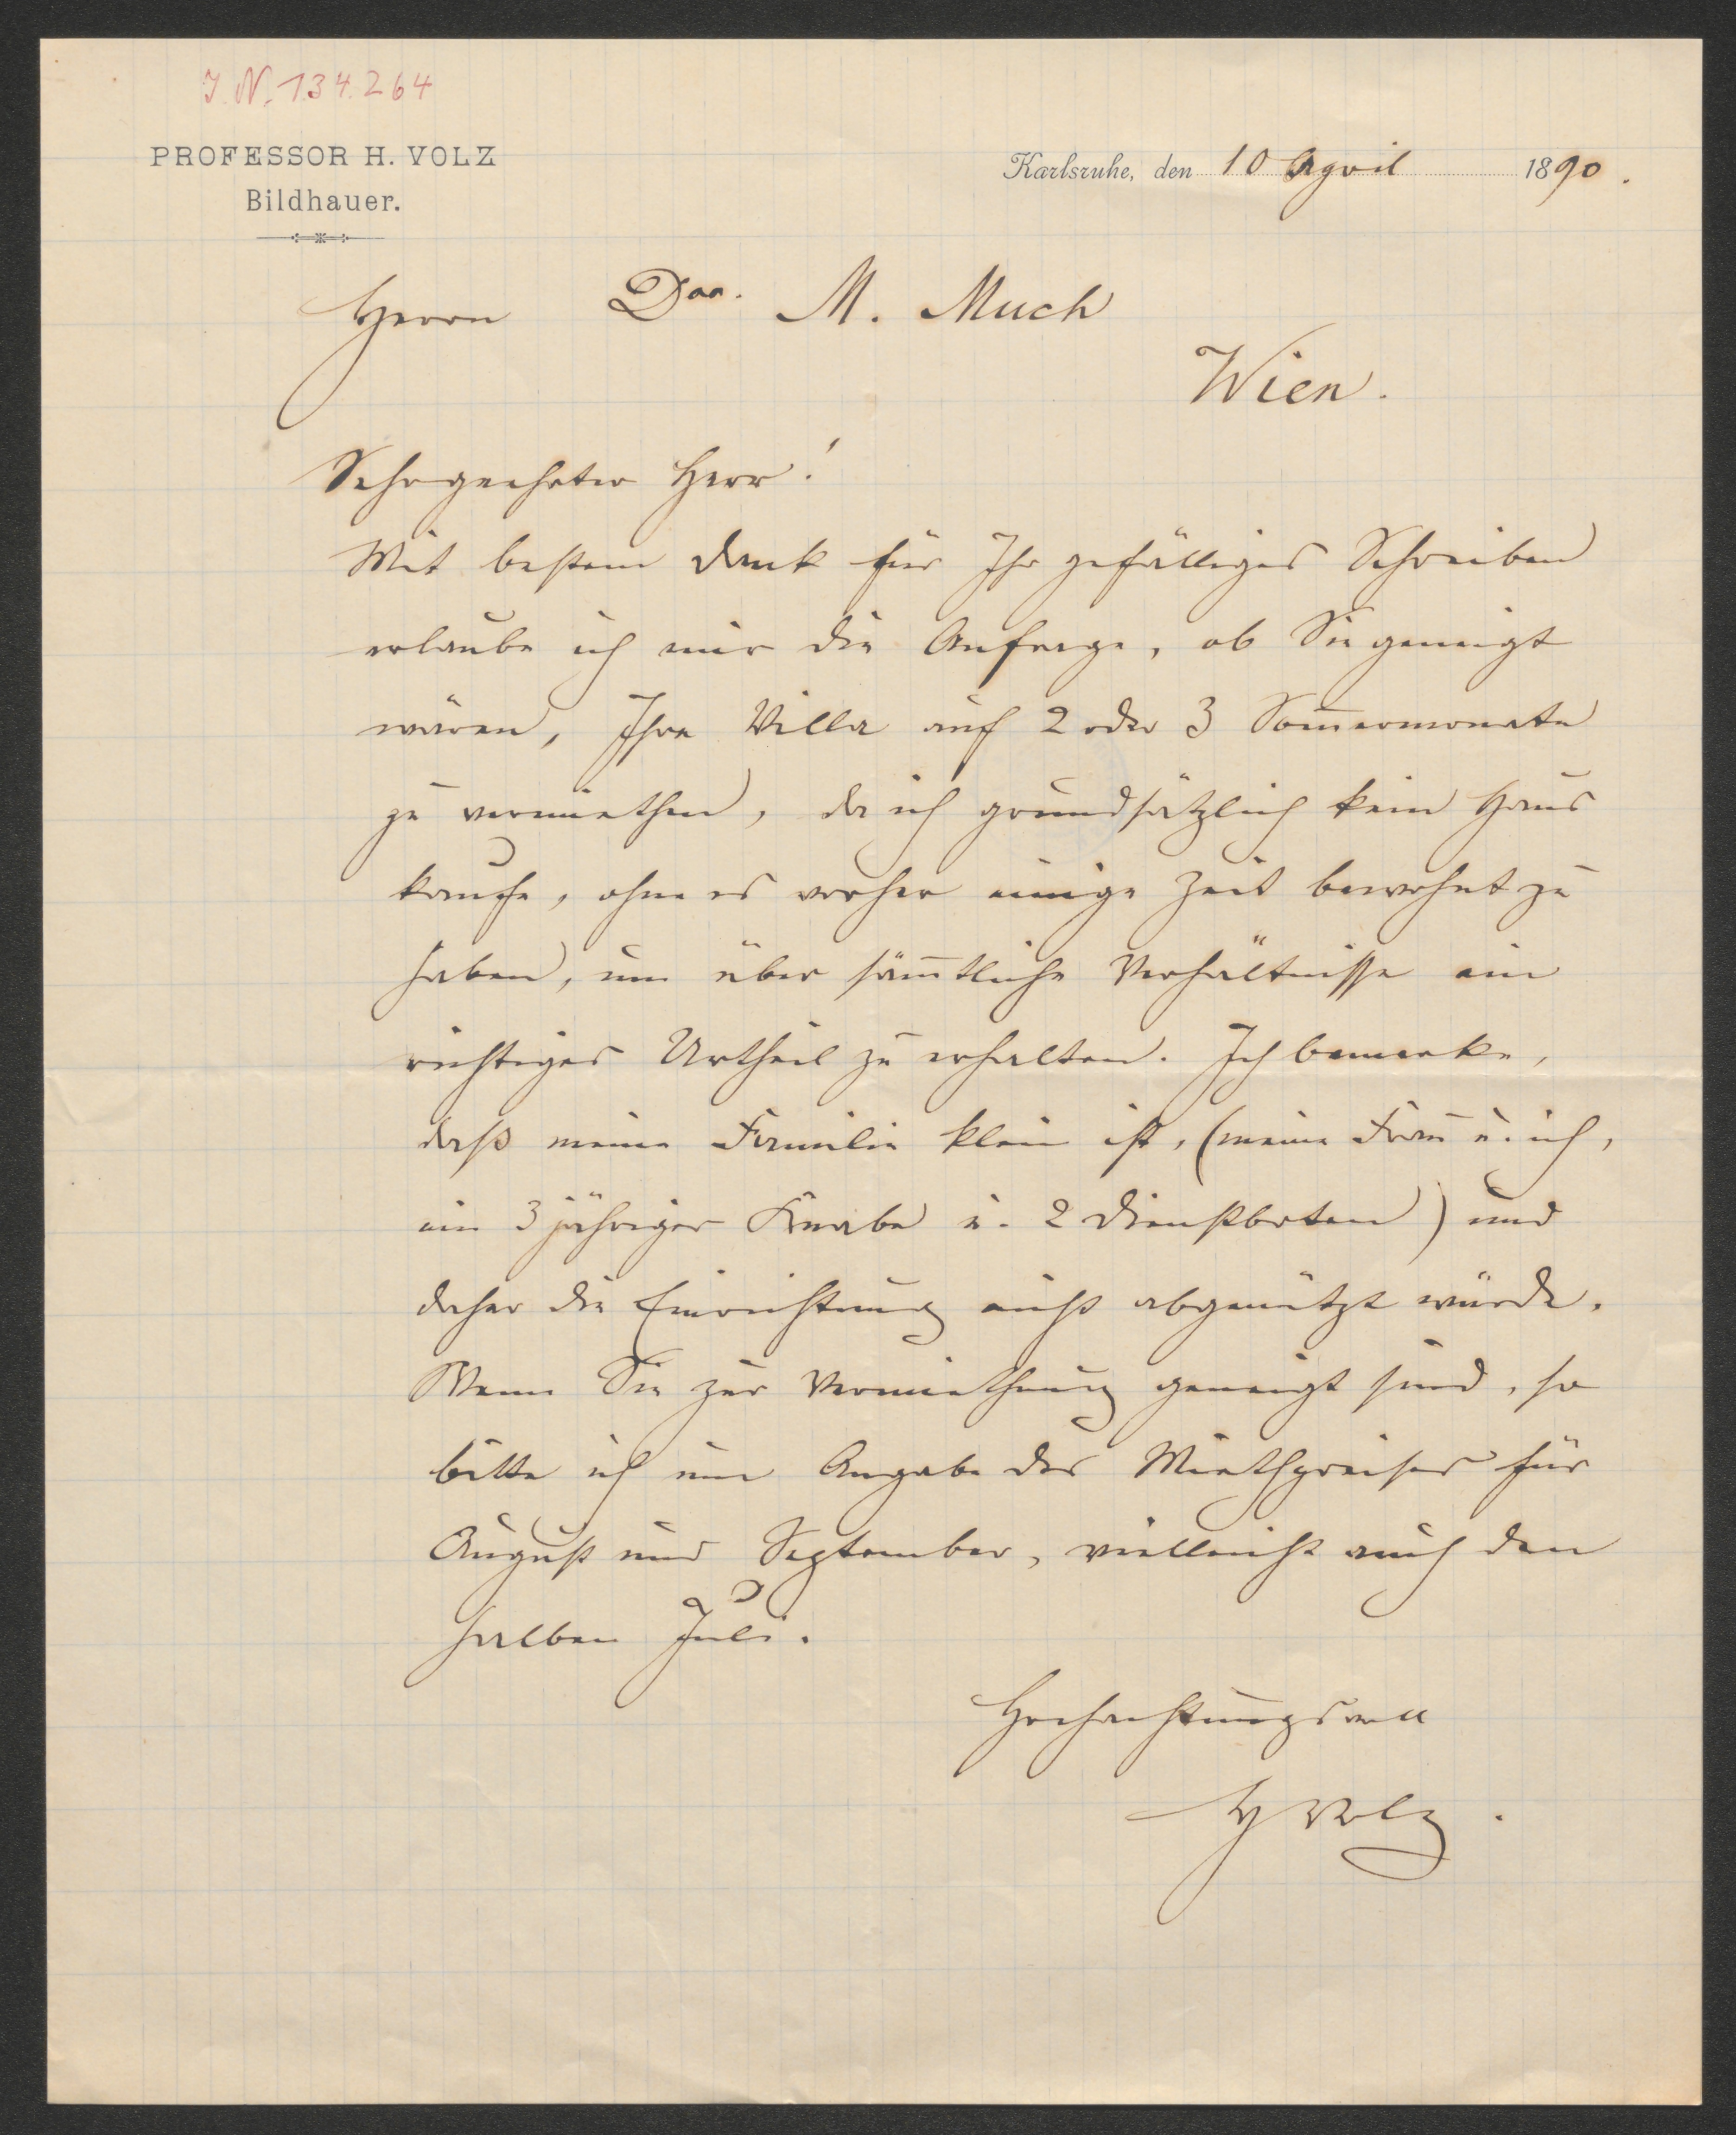 J. N. 134.264
PROFESSOR H. VOLZ
Bildhauer.
Karlsruhe, den 10 April 1890.
Herrn Dr. M. Much
Wien.
Sehrgeehrter Herr!
Mit bestem Dank für Ihr gefälliges Schreiben
erlaube ich mir die Anfrage, ob Sie geneigt
wären, Ihre Villa auf 2 oder 3 Som̄ermonate
zu vermiethen, da ich grundsätzlich kein Haus
kaufe, ohne es vorher einige Zeit bewohnt zu
haben, um über säm̄tliche Verhältnisse ein
richtiges Urtheil zu erhalten. Ich bemerke,
daß meine Familie klein ist, (meine Frau u. ich,
ein 3 jähriger Knabe u. 2 Dienstboten) und
daher die Einrichtung nicht abgenützt würde.
Wenn Sie zur Vermiethung geneigt sind, so
bitte ich um Angabe des Miethpreises für
August und September, vielleicht auch den
halben Juli.
Hochachtungsvoll
H Volz.